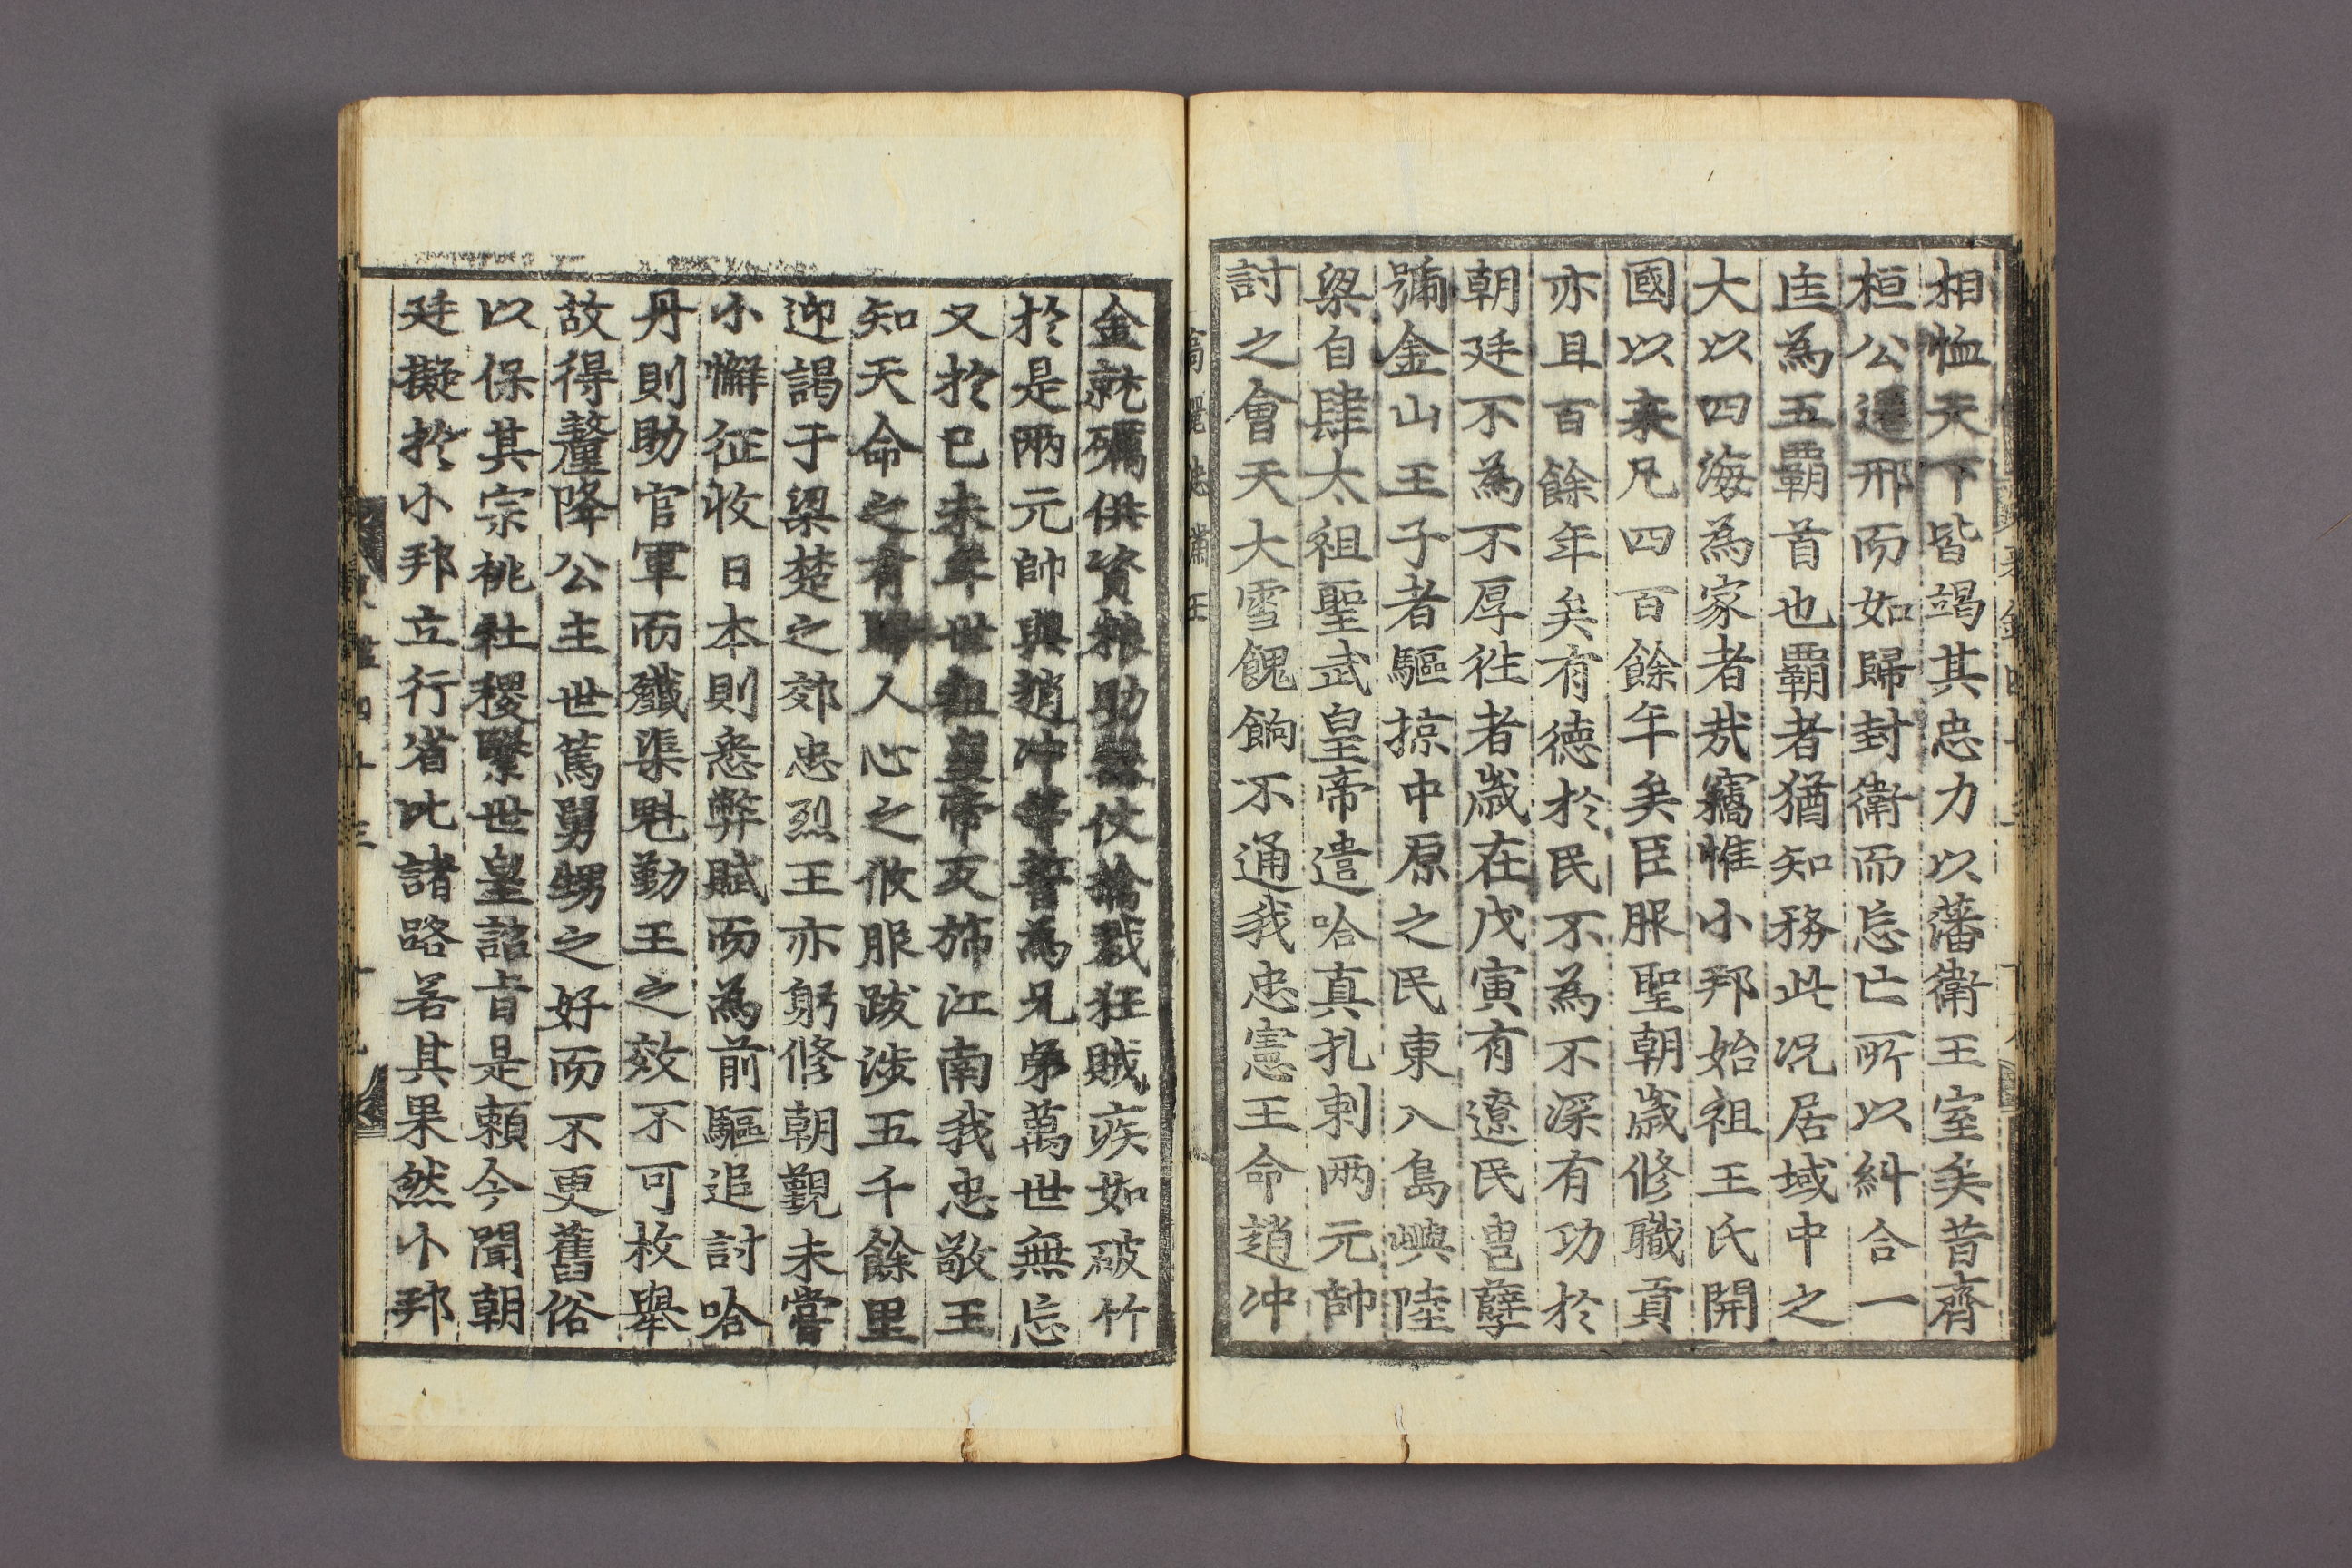 相恤天下皆竭其忠力以藩衛王室矣昔齊
桓公遷邢而如歸封衛而忘亡所以糾合一
匡為五霸首也霸者猶知務此況居域中之
大以四海為家者哉竊惟小邦始祖王氏開
國以来凡四百餘年矣臣服聖朝歲修職貢
亦且百餘年矣有德於民不為不深有功於
朝廷不為不厚徃者歲在戊寅有遼民皀孽
號金山王子者驅掠中原之民東入島嶼陸
梁自肆太祖聖武皇帝遣哈真扎剌两元帥
討之會天大雪餽餉不通我忠憲王命趙冲
高麗忠肅王
金就礪供資粮助器仗擒戮狂賊疾如破竹
於是兩元帥與趙冲等誓為兄弟萬世無忘
又於己未年世祖皇帝反旆江南我忠敬王
知天命之有歸人心之攸服跋涉五千餘里
迎謁于梁楚之郊忠烈王亦躬修朝覲未嘗
小懈征收日本則悉弊賦而為前驅追討哈
丹則助官軍而殲渠魁勤王之效不可枚舉
故得釐降公主世篤舅甥之好而不更舊俗
以保其宗祧社稷繄世皇詔旨是賴今聞朝
廷擬於小邦立行省比諸路若其果然小邦